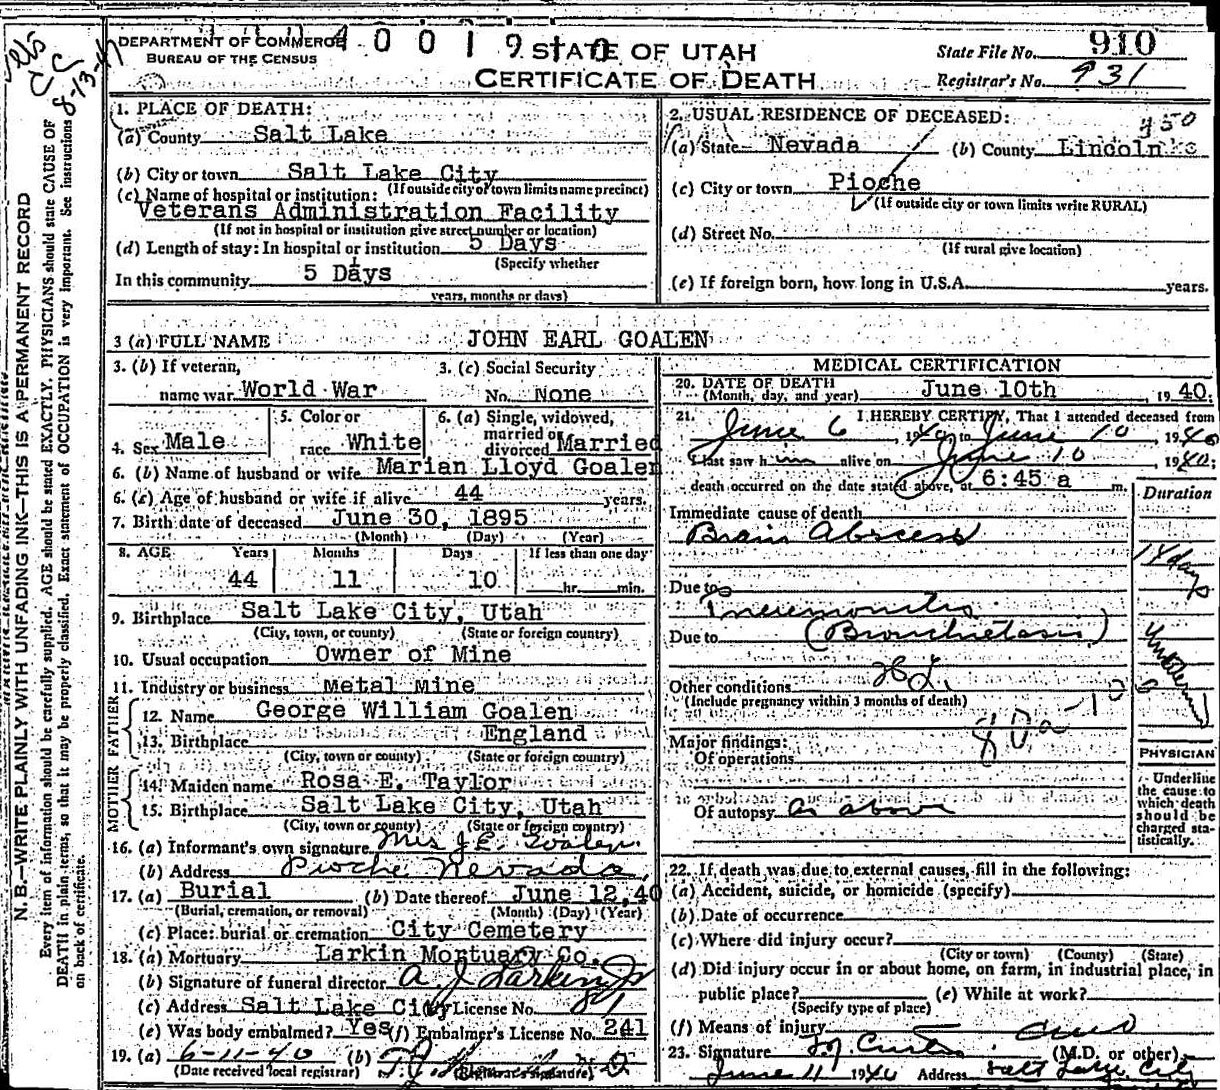 DEPARTMENT OF COMMERCE
BUREAU OF THE CENSUS
STATE OF UTAH
CERTIFICATE OF DEATH
State File No. 910
Registrar's No. 931
N. B.—WRITE PLAINLY WITH UNFADING INK—THIS IS A PERMANENT RECORD
Every item of information should be carefully supplied. AGE should be stated EXACTLY. PHYSICIANS should state CAUSE OF
DEATH in plain terms, so that it may be properly classified. Exact statement of OCCUPATION is very important. See instructions
on back of certificate.
8-13-41
1. PLACE OF DEATH:
(a) County Salt Lake
(b) City or town Salt Lake City
(If outside city or town limits name precinct)
(c) Name of hospital or institution:
Veterans Administration Facility
(If not in hospital or institution give street number or location)
(d) Length of stay: In hospital or institution 5 Days
(Specify whether
In this community 5 Days
years, months or days)
2. USUAL RESIDENCE OF DECEASED:
950
(a) State Nevada (b) County Lincoln
(c) City or town Pioche
(If outside city or town limits write RURAL)
(d) Street No.
(If rural give location)
(e) If foreign born, how long in U.S.A. years.
3 (a) FULL NAME JOHN EARL GOALEN
3. (b) If veteran,
name war World War
3. (c) Social Security
No. None
4. Sex Male
5. Color or
race White
6. (a) Single, widowed,
married or
divorced Married
6. (b) Name of husband or wife Marian Lloyd Goalen
6. (c) Age of husband or wife if alive 44 years.
7. Birth date of deceased June 30, 1895
(Month) (Day) (Year)
8. AGE Years Months Days If less than one day
44 11 10 hr. min.
9. Birthplace Salt Lake City, Utah
(City, town, or county) (State or foreign country)
10. Usual occupation Owner of Mine
11. Industry or business Metal Mine
FATHER
12. Name George William Goalen
13. Birthplace England
(City, town or county) (State or foreign country)
MOTHER
14. Maiden name Rosa E. Taylor
15. Birthplace Salt Lake City, Utah
(City, town or county) (State or foreign country)
16. (a) Informant's own signature Mrs J.E. Goalen
(b) Address Pioche Nevada
17. (a) Burial (b) Date thereof June 12, 40
(Burial, cremation, or removal) (Month) (Day) (Year)
(c) Place: burial or cremation City Cemetery
18. (a) Mortuary Larkin Mortuary Co.
(b) Signature of funeral director A. J. Larkin Jr
(c) Address Salt Lake City License No. 81
(e) Was body embalmed? Yes (f) Embalmer's License No. 241
19. (a) 6-11-40 (b)
(Date received local registrar) (Registrar's signature)
MEDICAL CERTIFICATION
20. DATE OF DEATH
(Month, day, and year) June 10th, 1940;
21. I HEREBY CERTIFY, That I attended deceased from
June 6, 1940 to June 10 1940
I last saw him alive on June 10 1940;
death occurred on the date stated above, at 6:45 a m.
Duration
Immediate cause of death
Brain Abscess
14 days
Due to
Pneumonitis
Due to (Bronchiectasis)
Unknown
Other conditions
(Include pregnancy within 3 months of death)
Major findings:
Of operations
Of autopsy as above
PHYSICIAN
Underline
the cause to
which death
should be
charged sta-
tistically.
22. If death was due to external causes, fill in the following:
(a) Accident, suicide, or homicide (specify)
(b) Date of occurrence
(c) Where did injury occur?
(City or town) (County) (State)
(d) Did injury occur in or about home, on farm, in industrial place, in
public place? (e) While at work?
(Specify type of place)
(f) Means of injury
23. Signature Curtis (M.D. or other)
June 11 1940 Address Salt Lake City